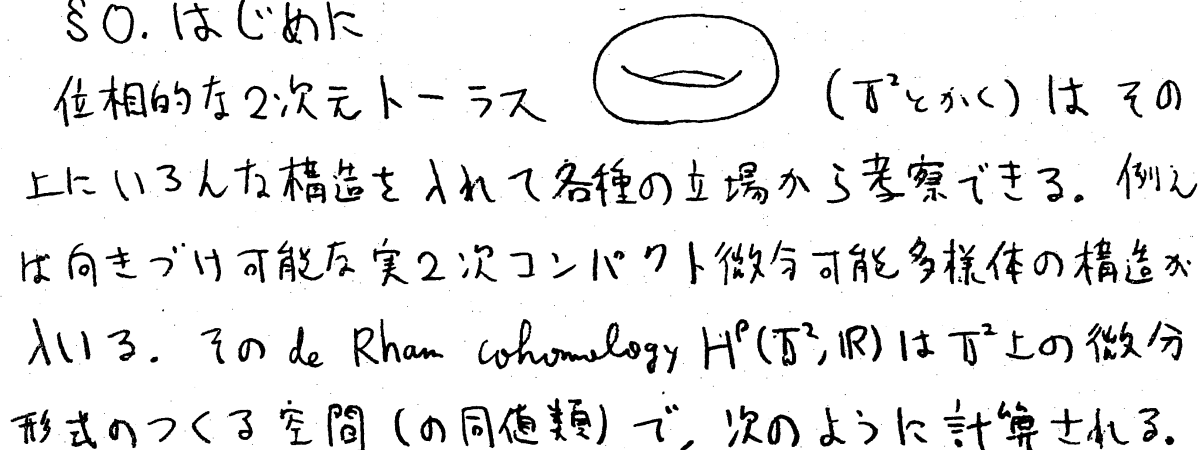 §0. はじめに
位相的な2次元トーラス (𝕋²とかく) は その
上にいろんな構造を入れて各種の立場から考察できる。例え
ば向きづけ可能な実2次コンパクト微分可能多様体の構造が
入いる. その de Rham cohomology Hᵖ(𝕋², ℝ) は 𝕋² 上の微分
形式のつくる空間 (の同値類) で, 次のように計算される.